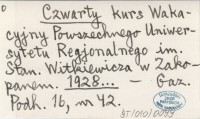 Czwarty kurs Waka-
cyjny Powszechnego Uniwer-
sytetu Regjonalnego im.
Stan. Witkiewicza w Zako-
panem. 1928... Gaz.
Podh. 16, nr 42.
BT/010/0099